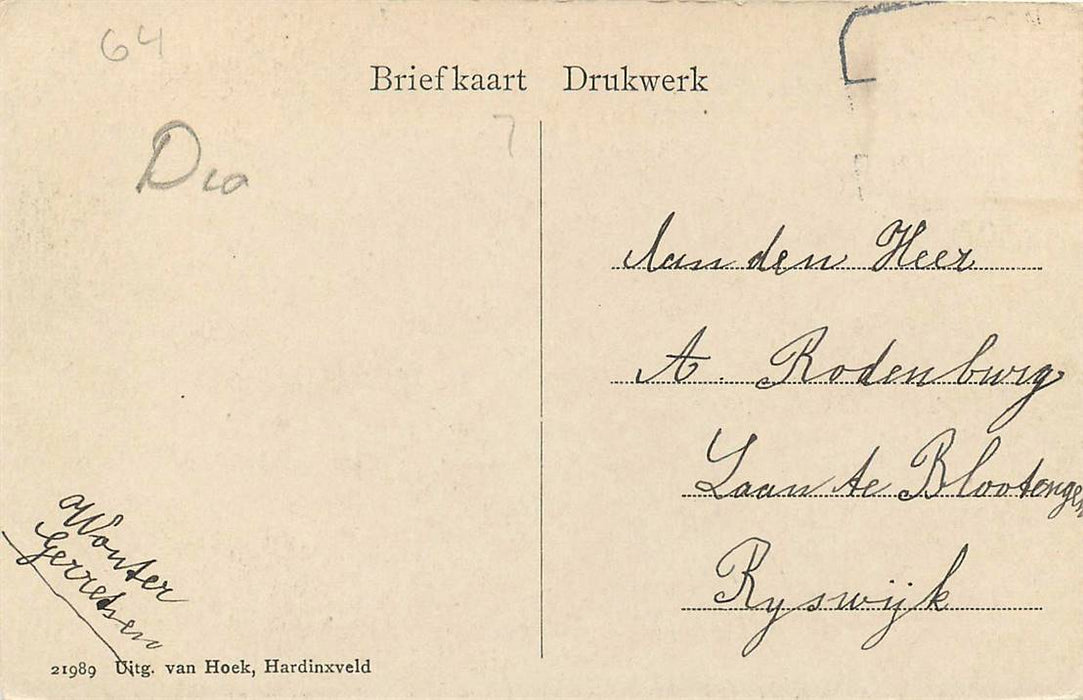 64
Briefkaart Drukwerk
7
Dro
Aan den Heer
A. Rodenburg
Laan te Blootenge
Ryswijk
Wouter
Gerretsen
21989 Uitg. van Hoek, Hardinxveld